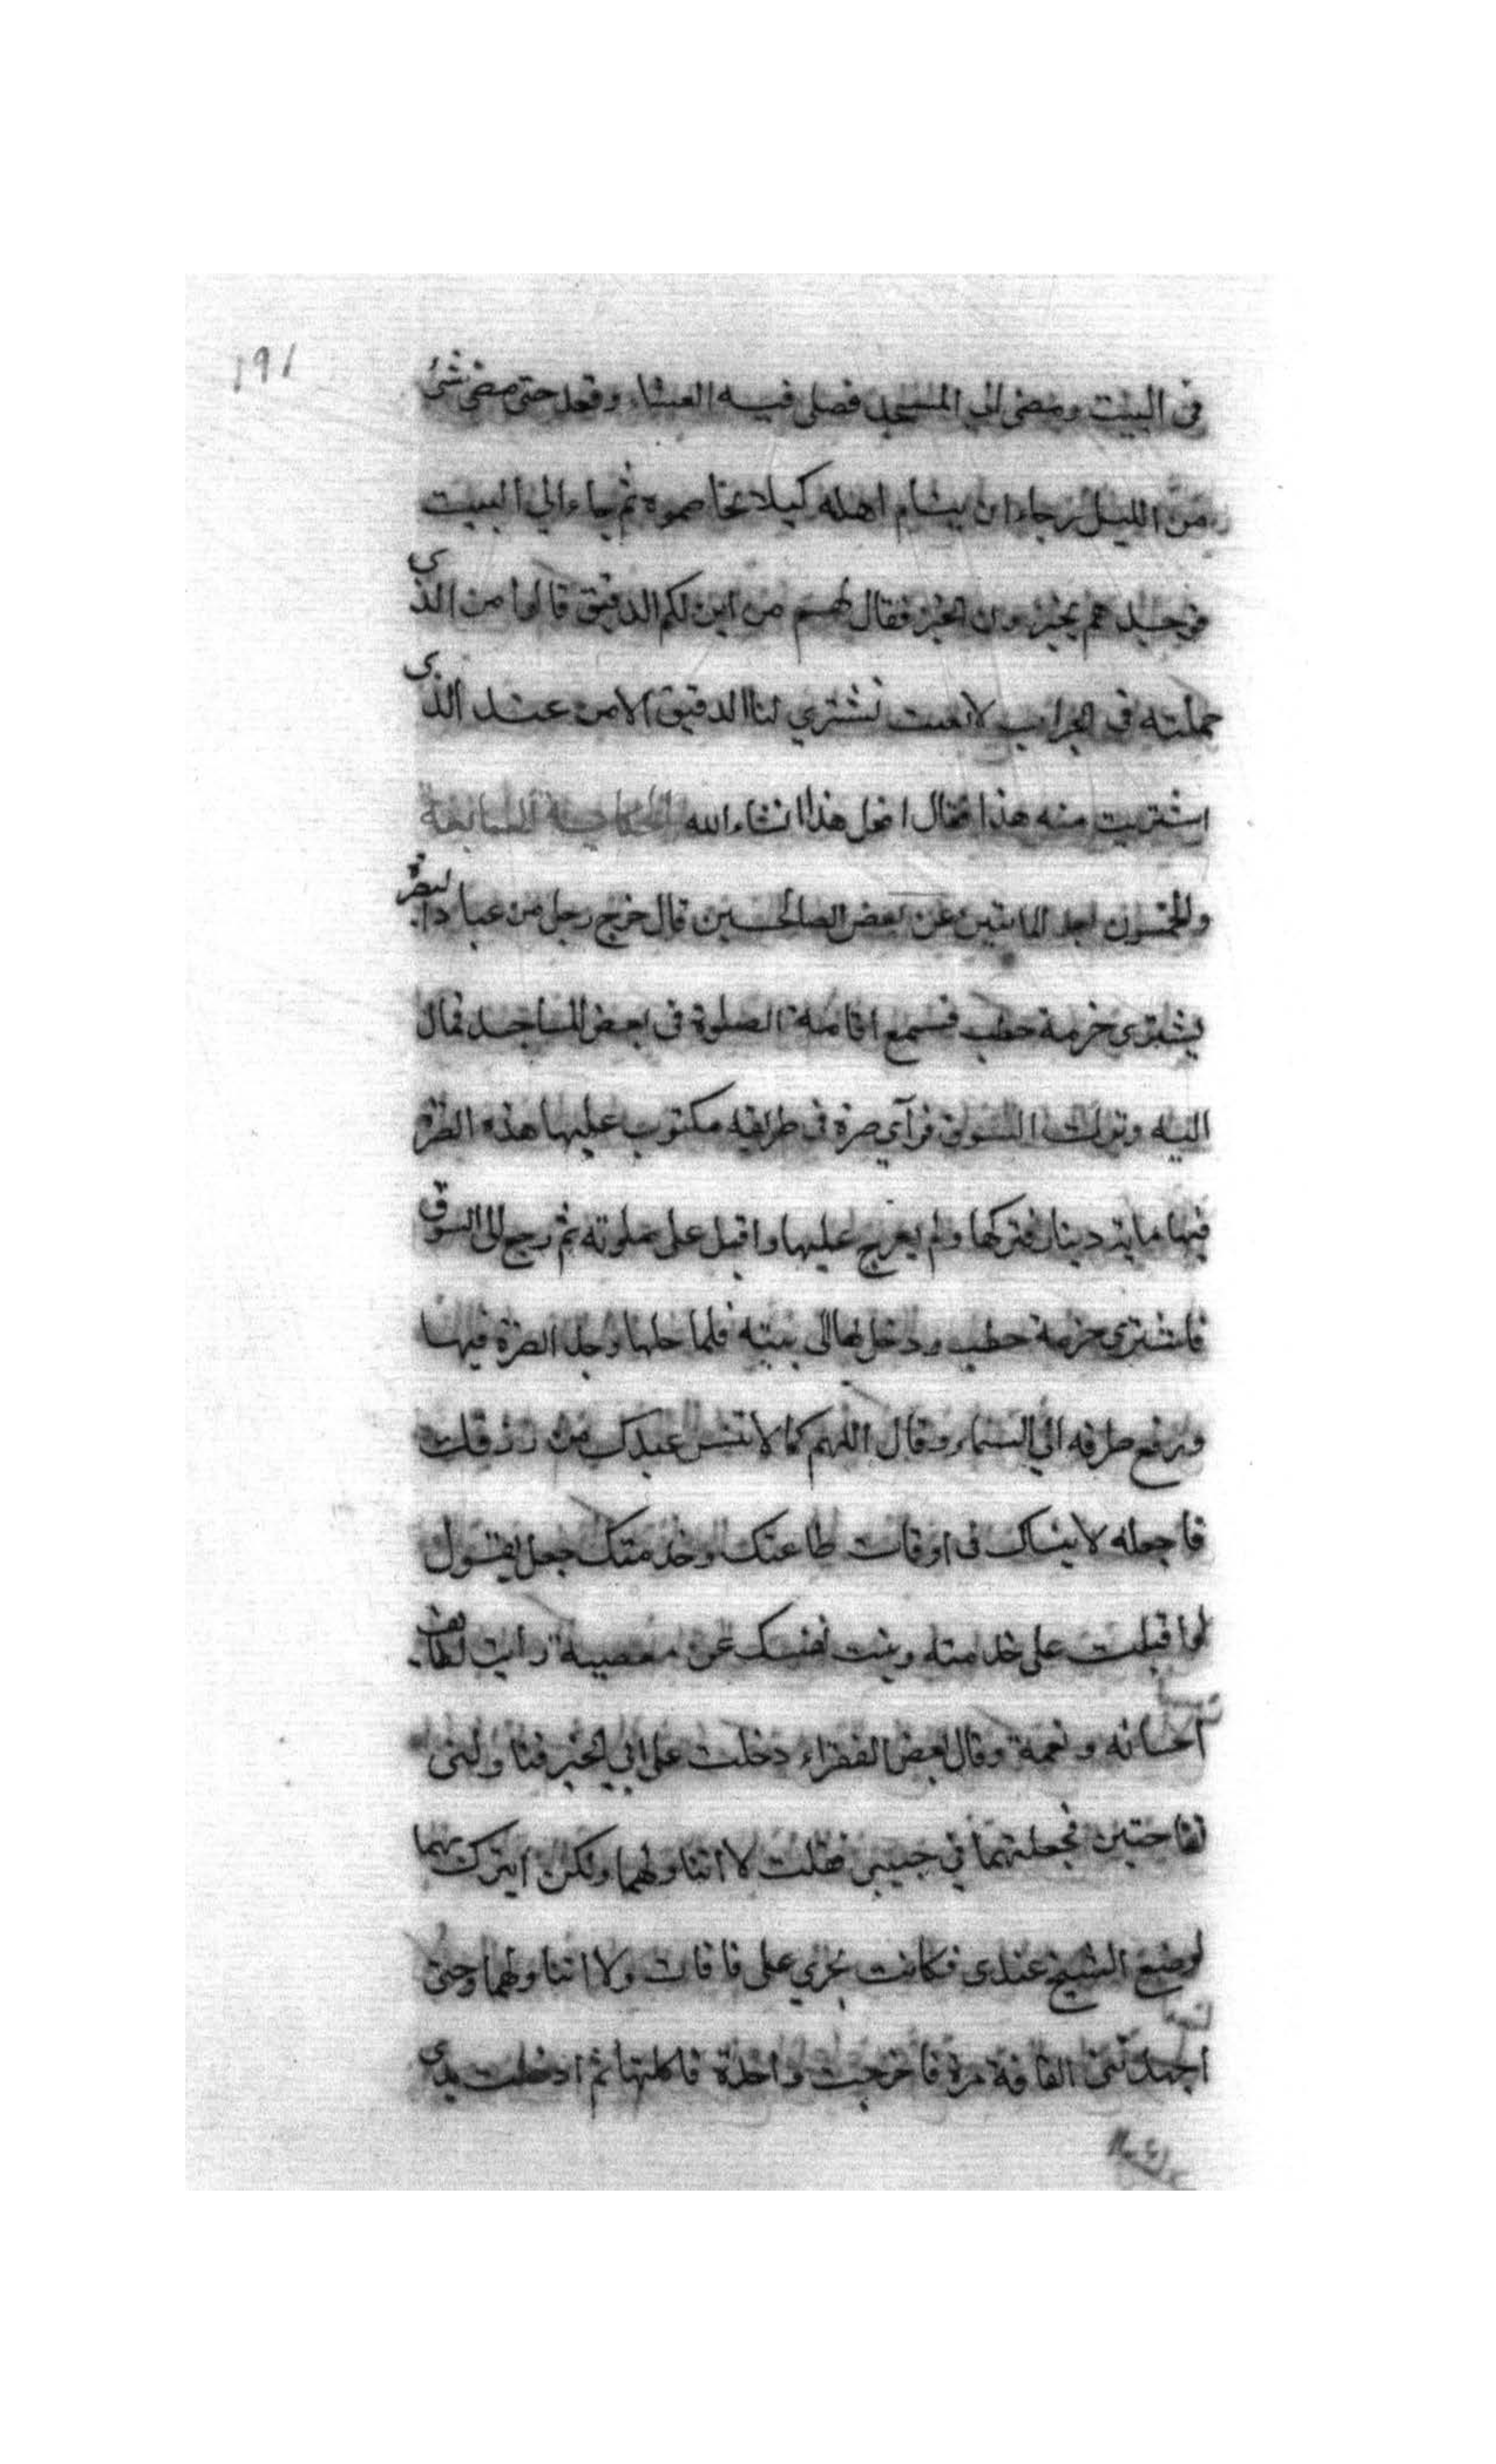 ١٩١
فى البيت ومضى الى المسجد فصلى فيه العشاء وقعد حتى مضى شئ
من الليل رجاء ان ينام اهله كيلا تخاصموه ثم جاء الي البيت
فوجدهم يخبزون الخبز فقال لهم من اين لكم الدقيق قالوا من الذى
حملته فى الجراب لا تشتري لنا الدقيق الا من عند الذى
اشتريت منه هذا فقال افعل هذا انشاء الله الحكاية السابعة
والخمسون بعد المايتين عن بعض الصالحين قال خرج رجل من عباد البصرة
يشترى حزمة حطب فسمع اقامة الصلوة فى بعض المساجد فمال
اليه وترك السوق فرآي صرة فى طريقه مكتوب عليها هذه الصرة
فيها ماية دينار فتركها ولم يعرج عليها واقبل على صلوته ثم رجع الى السوق
فاشترى حزمة حطب ودخل بها الى بيته فلما حلها وجد الصرة فيها
ورفع طرفه الي السماء وقال اللهم كما لا تنس عبدك من رزقك
فاجعله لا ينساك فى اوقات طاعتك وخدمتك جعل يقول
لو اقبلت على خدمته نفسك عن معصية رايت لطايف
احسانه ونعمة وقال بعض الفقراء دخلت على ابي الخير فناولنى
تفاحتين فجعلتهما في جيبي فقلت لا اتناولهما ولكن اتبرك بهما
لوضع الشيخ عندى فكانت تجري على فاقات ولا اتناولهما وحتى
اجهدتنى الفاقة مرة فاخرجت واحدة فاكلتها ثم ادخلت يدى